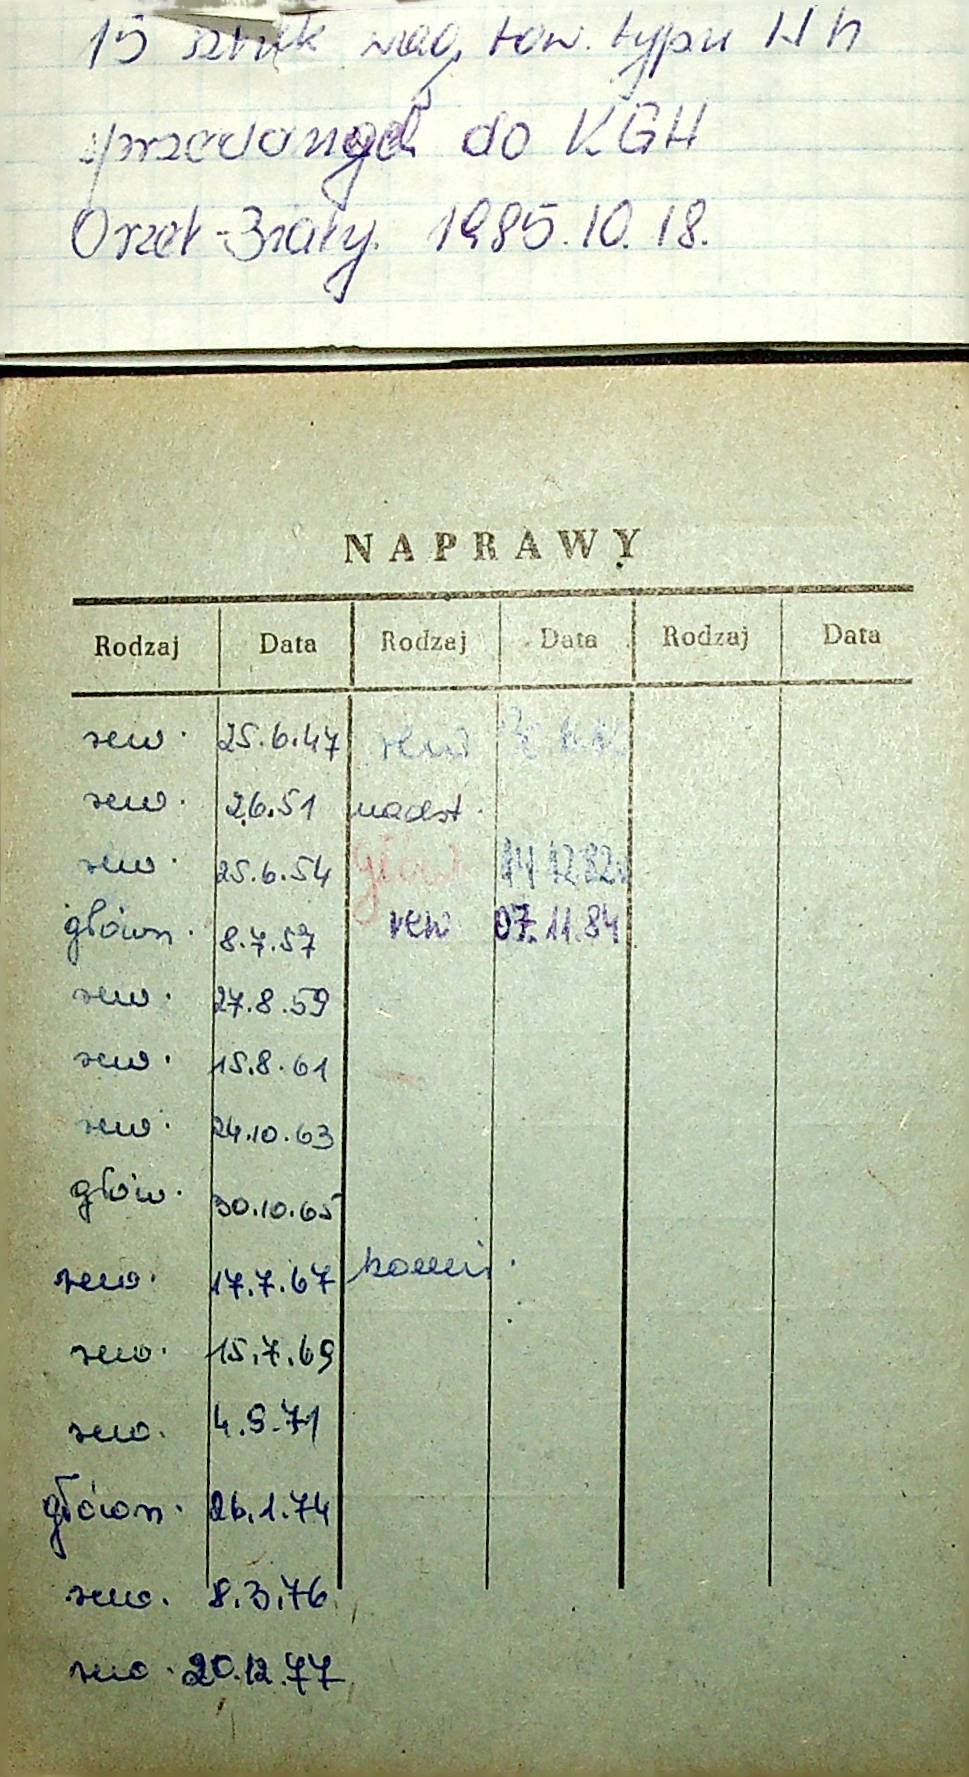 15 sztuk wag. tow. typu Hh
sprzedanych do KGH
Orzeł-Biały. 1985.10.18.
NAPRAWY
Rodzaj Data Rodzaj Data Rodzaj Data
rew. 25.6.47 rew
rew. 2.6.51 nadst.
rew. 25.6.54 głów 14 12 82
główn. 8.7.57 rew 07.11.84
rew. 27.8.59
rew. 15.8.61
rew. 24.10.63
głów. 30.10.65
rew. 17.7.67
rew. 15.7.69
rew. 4.9.71
główn. 26.1.74
rew. 8.3.76
rew. 20.12.77